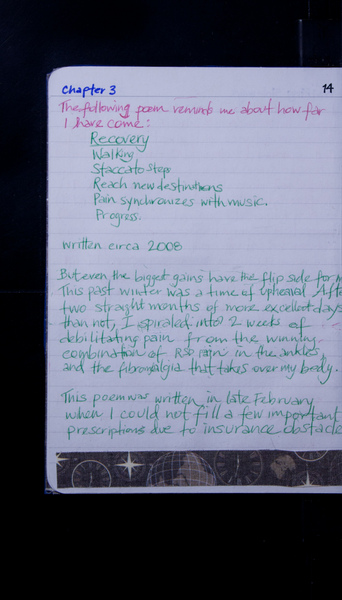 Chapter 3
14
The following poem reminds me about how far
I have come:
Recovery
Walking
Staccato steps
Reach new destinations
Pain synchronizes with music.
Progress.
written circa 2008
But even the biggest gains have the flip side for
This past winter was a time of upheaval. Afte
two straight months of more excellent days
than not, I spiraled into 2 weeks of
debilitating pain from the winning
combination of RSD pain in the ankles,
and the fibromyalgia that takes over my body.
This poem was written in late February
when I could not fill a few important
prescriptions due to insurance obstacle